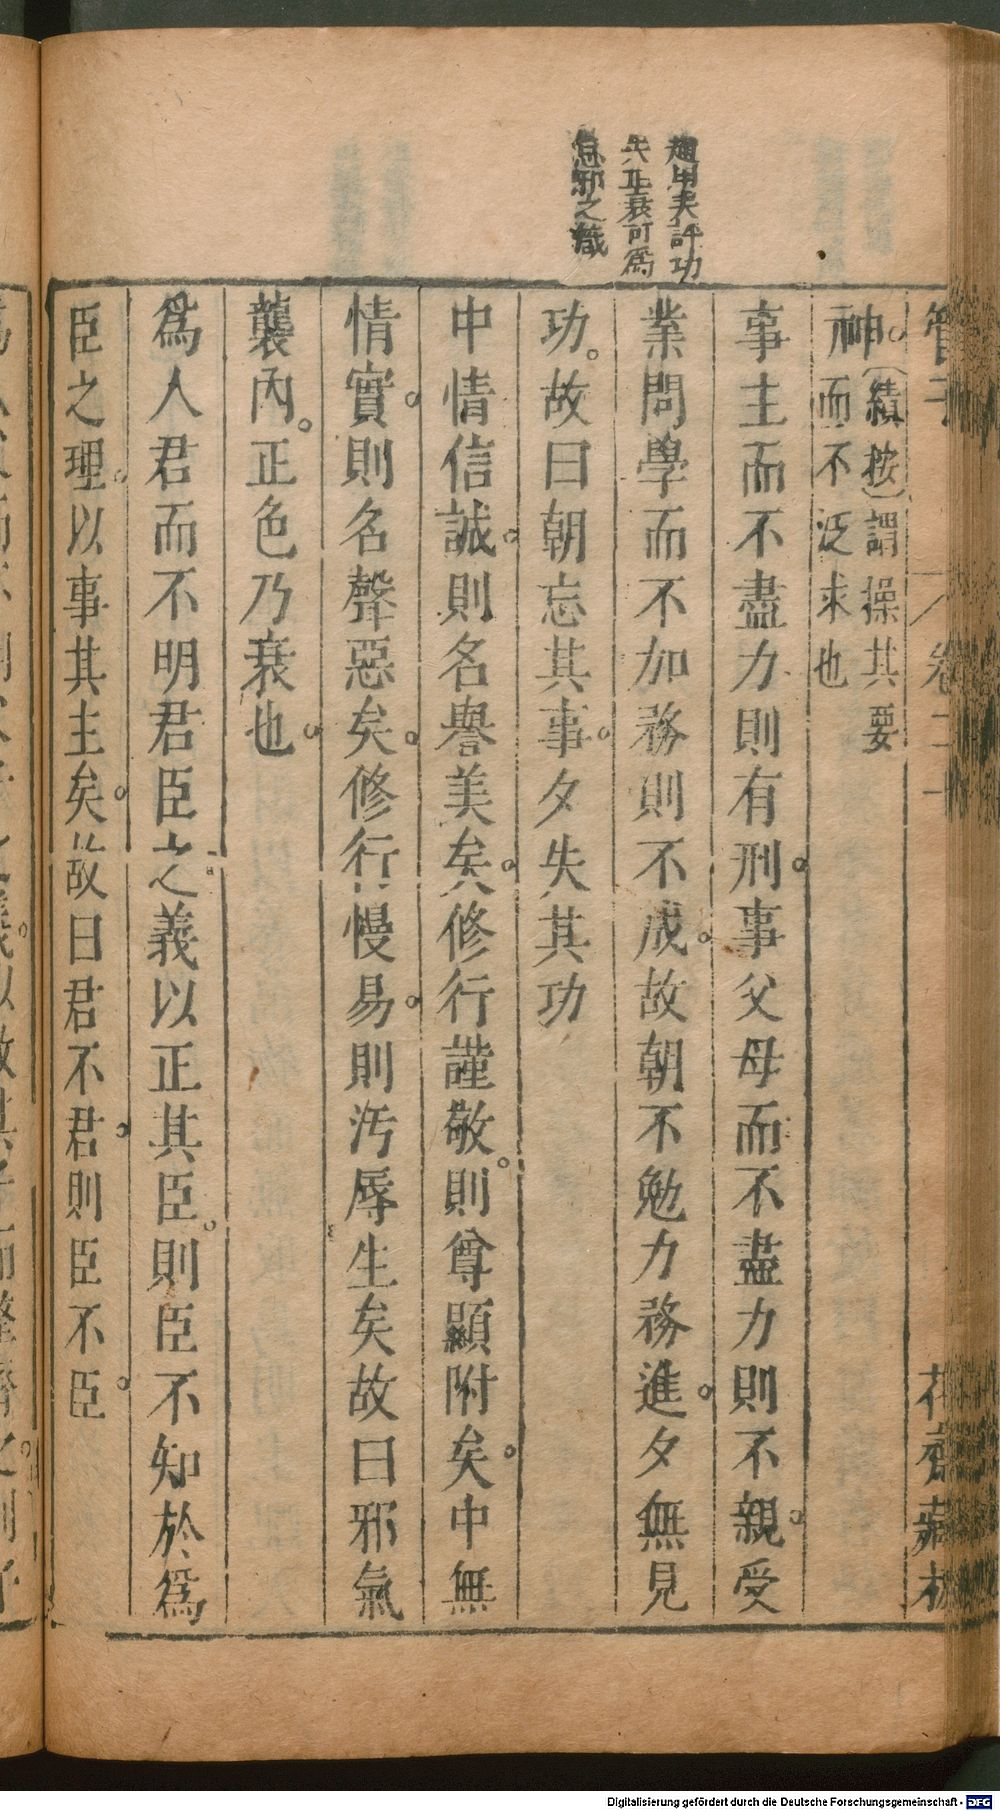 趙用夫評功
失正衰可爲
息邪之箴
管子
卷二十
花齋藏板
神。(績按)謂操其要
而不泛求也
事主而不盡力則有刑。事父母而不盡力則不親。受
業問學而不加務則不成。故朝不勉力務進。夕無見
功。故曰朝忘其事。夕失其功
中情信誠。則名譽美矣。修行謹敬。則尊顯附矣。中無
情實。則名聲惡矣。修行慢易。則汚辱生矣故曰邪氣
襲內。正色乃衰也。
爲人君而不明君臣之義以正其臣。則臣不知於爲
臣之理。以事其主矣。故曰君不君。則臣不臣。
Digitalisierung gefördert durch die Deutsche Forschungsgemeinschaft - DFG